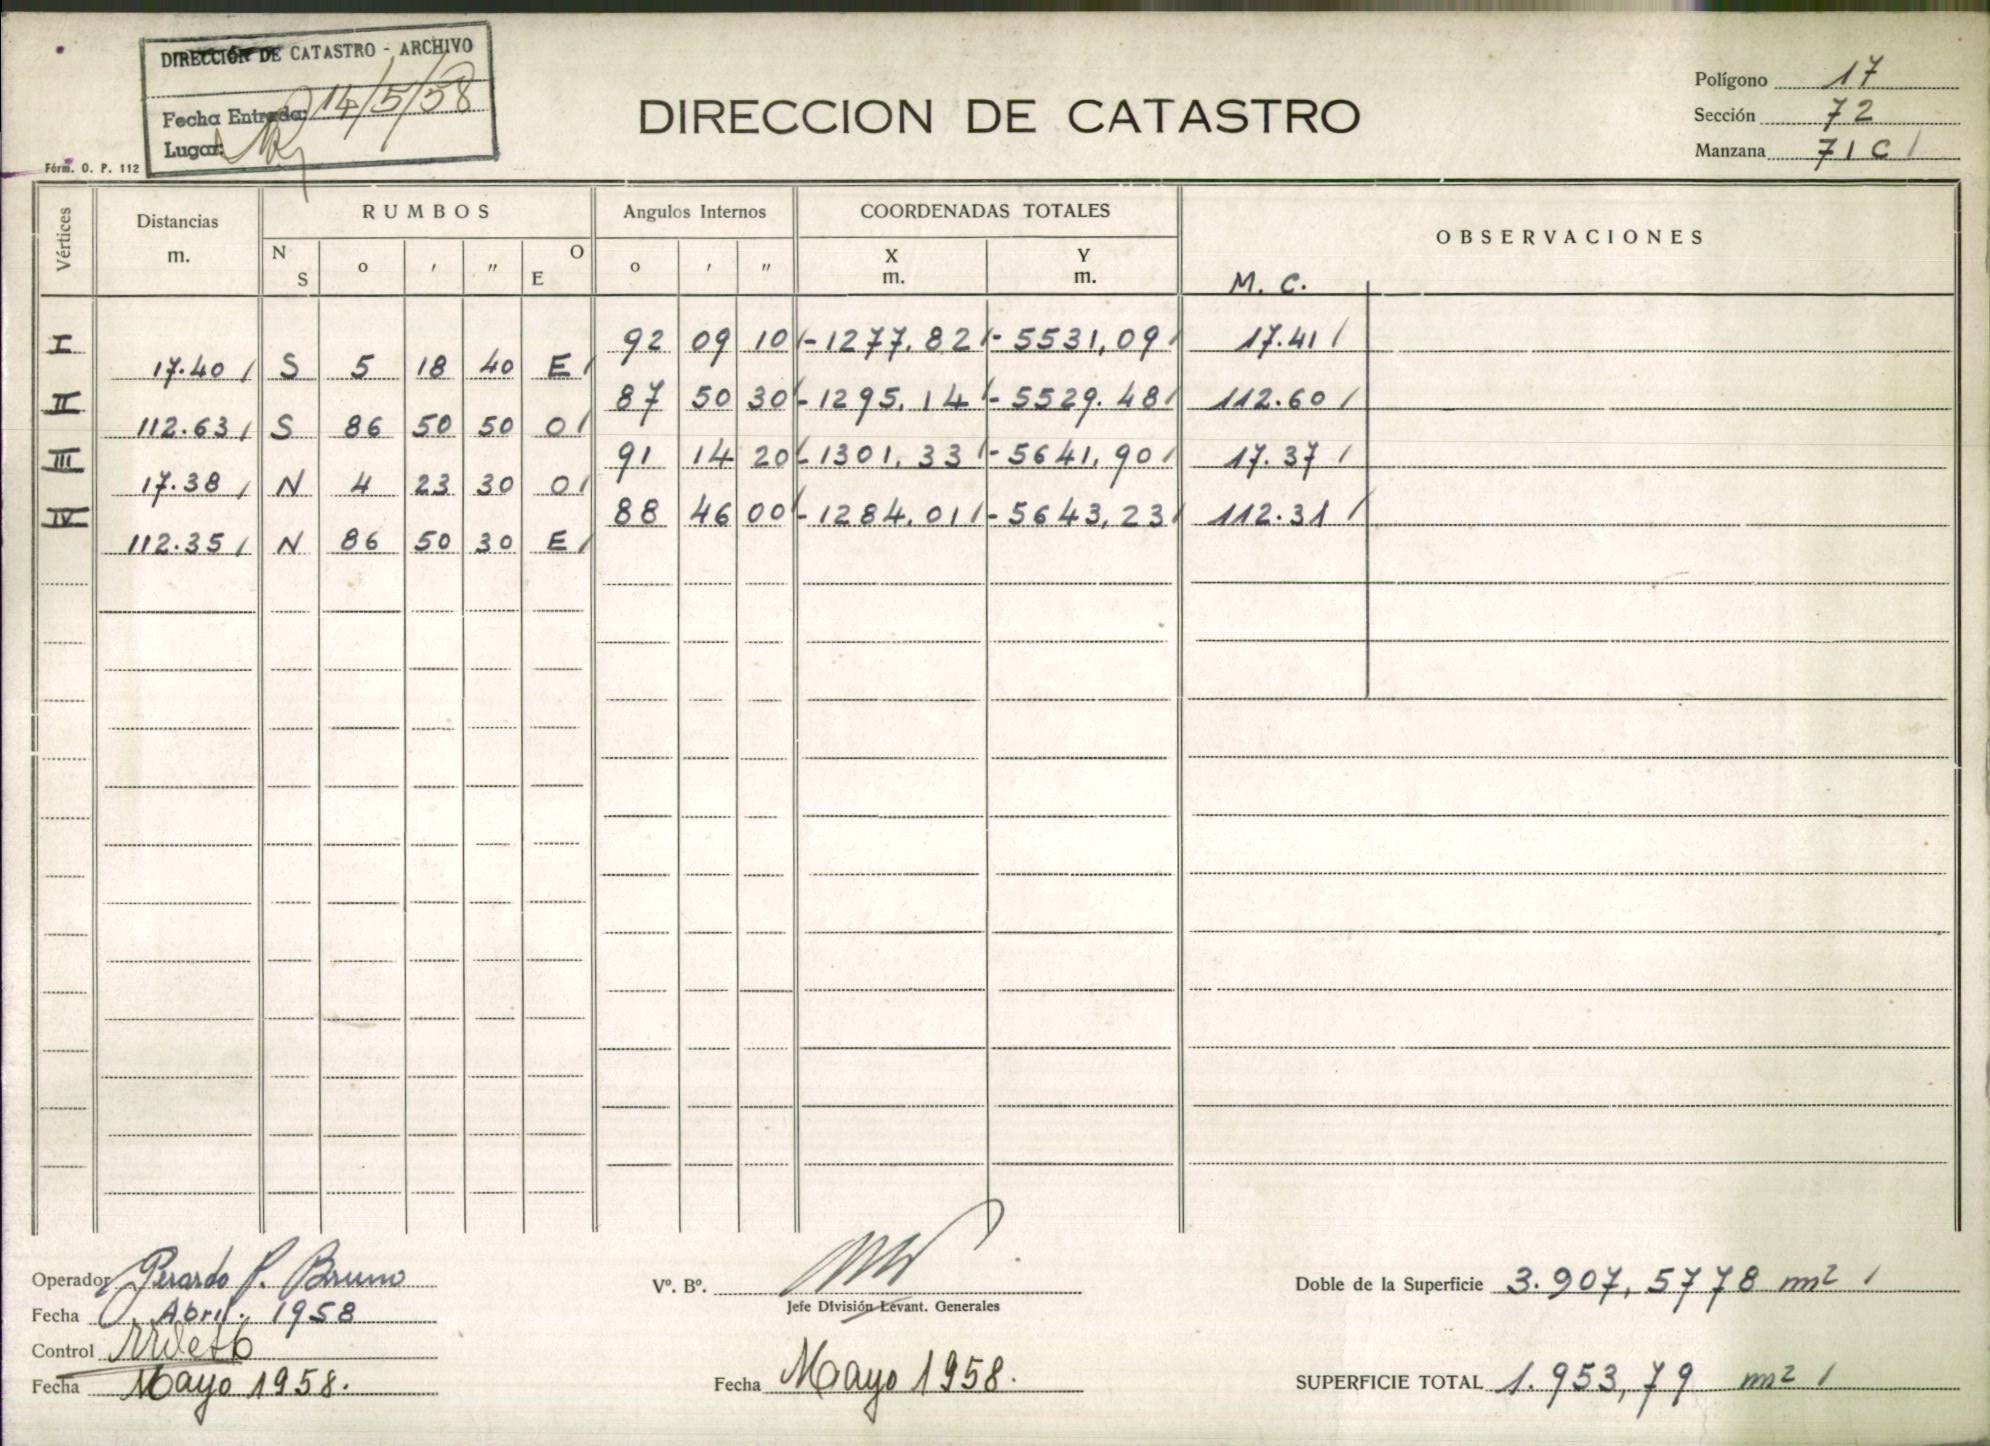 DIRECCIÓN DE CATASTRO - ARCHIVO
Fecha Entrada: 14/5/58
Lugar:
Fórm. O. P. 112
DIRECCION DE CATASTRO
Polígono 17
Sección 72
Manzana 71C /
Vértices Distancias m. RUMBOS Angulos Internos COORDENADAS TOTALES OBSERVACIONES
N S o ' " O E o ' " X m. Y m. M. C.
I 92 09 10 /-1277.82 /-5531,09 / 17.41 /
17.40 / S 5 18 40 E /
II 87 50 30 /-1295.14 /-5529.48 / 112.60 /
112.63 / S 86 50 50 O /
III 91 14 20 /-1301.33 /-5641,90 / 17.37 /
17.38 / N 4 23 30 O /
IV 88 46 00 /-1284.01 /-5643,23 / 112.31 /
112.35 / N 86 50 30 E /
Operador Gerardo P. Bruno
Fecha Abril. 1958
Control
Fecha Mayo 1958.
Vº. Bº.
Jefe División Levant. Generales
Fecha Mayo 1958.
Doble de la Superficie 3.907,5778 m2 /
SUPERFICIE TOTAL 1.953,79 m2 /